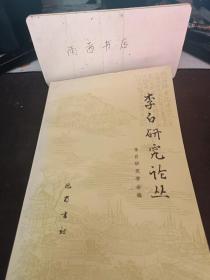 雨商书店
李白研究论丛
李白研究学会编
巴蜀书社